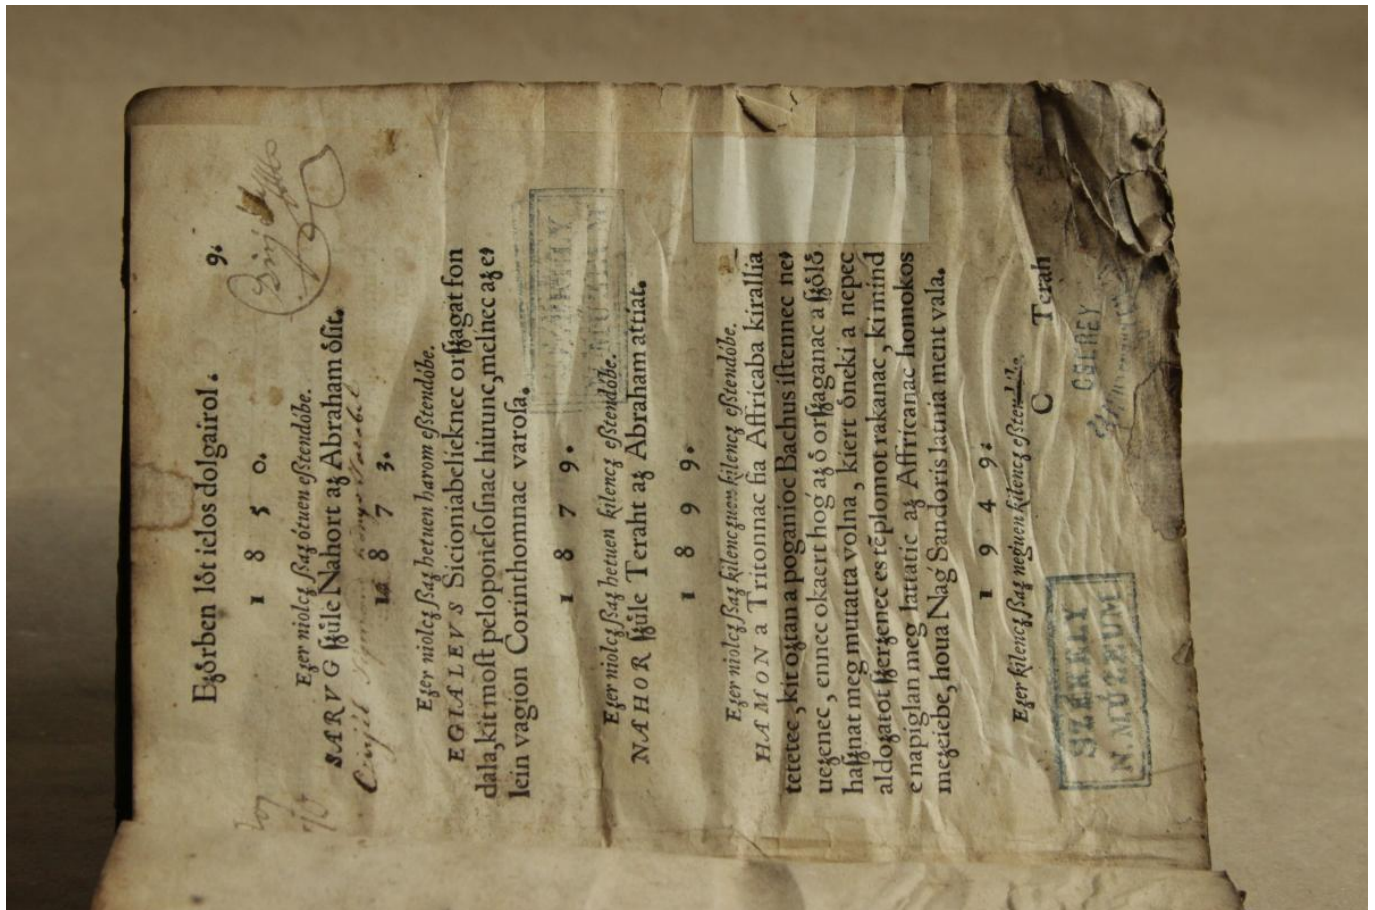 Ezórben lót idos dolgairol. 9.
1 8 5 0.
Ezer niolcz ßaz ótuen eßtendóbe.
SARVG ßúle Nahort az Abraham óßit.
1 8 7 3.
Ezer niolcz ßaz hetuen harom eßtendóbe.
EGIALEVS Sicioniabelieknec orßagat fon
dala, kit moſt peloponieſoſnac hiuunc, melinec aze⸗
lein vagion Corinthomnac varoſa.
1 8 7 9.
Ezer niolcz ßaz hetuen kilencz eßtendóbe.
NAHOR ßúle Teraht az Abraham attiat.
1 8 9 9.
Ezer niolcz ßaz kilenczuen kilencz eßtendóbe.
HAMON a Tritonnac fia Affricaba kirallia
tetetec, kit oztan a poganioc Bachus iſtennec ne⸗
uezenec, ennec okaert hog az ó orßaganac a ßóló
haßnat meg mutatta volna, kiert óneki a nepec
aldozatot ßerzenec es tēplomot rakanac, ki mind
e napiglan meg lattatic az Affricanac homokos
mezeiebe, houa Nag Sandoris latnia ment vala.
1 9 4 9.
Ezer kilencz ßaz neguen kilencz eßtendóbe.
C Terah
SZÉKELY
N. MÚZEUM